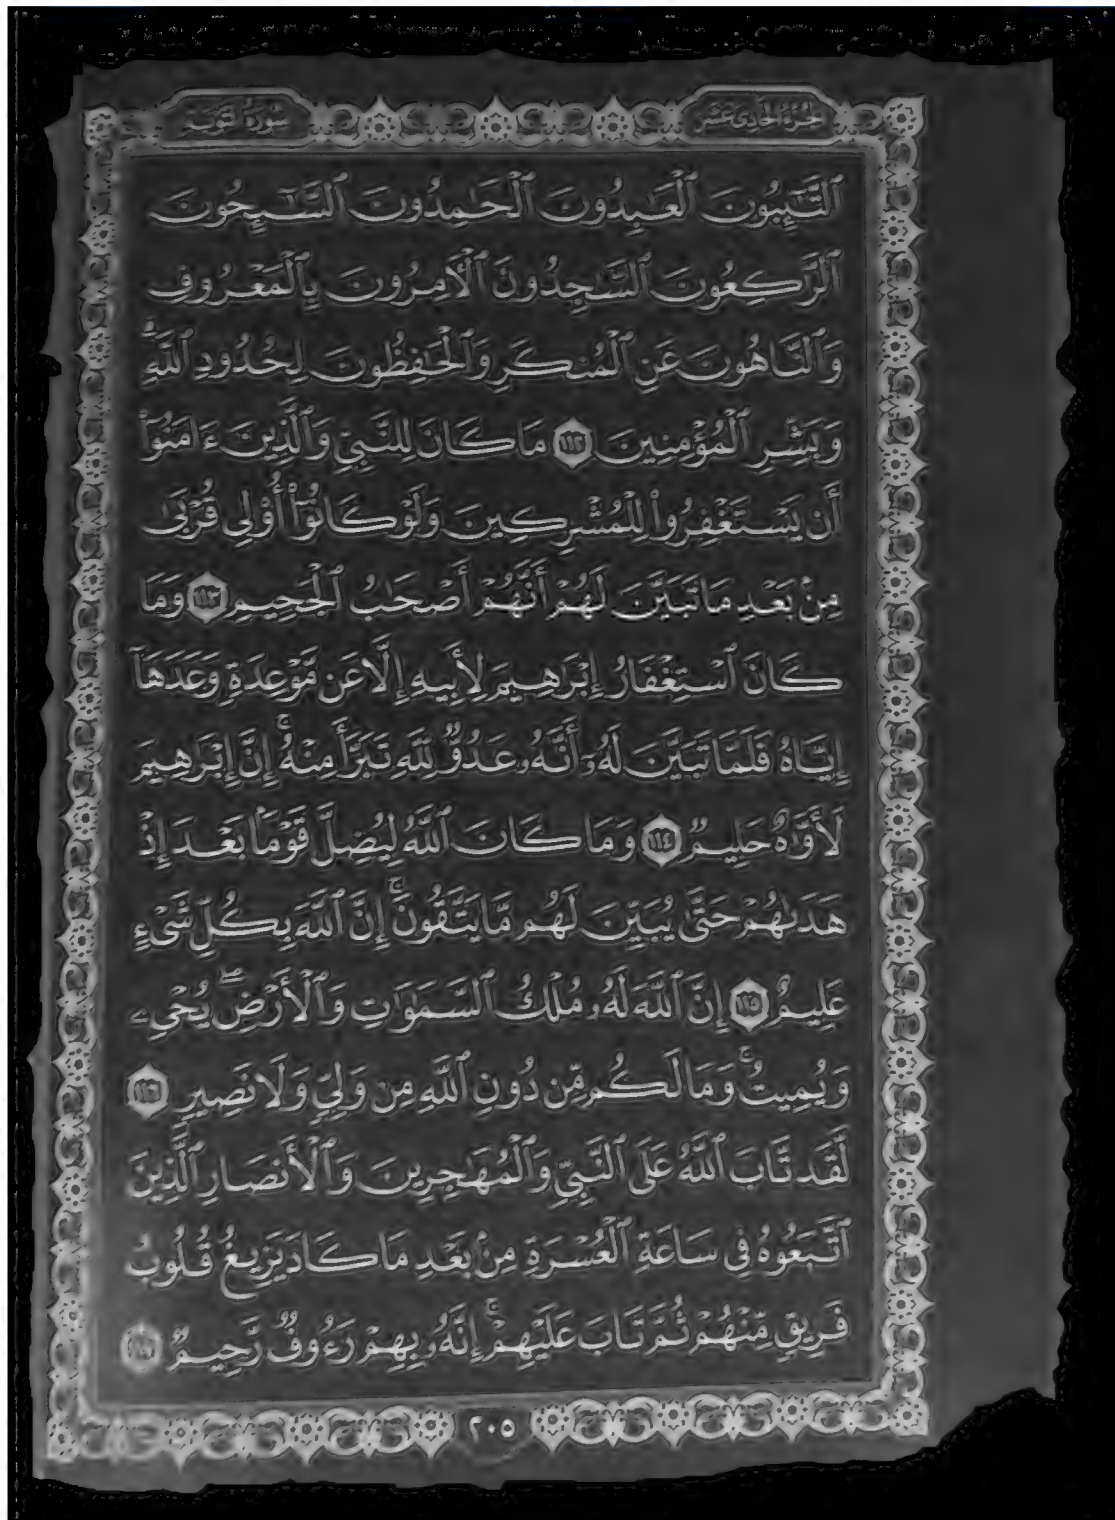 الجزء الحادي عشر
سورة التوبة
ٱلتَّٰٓئِبُونَ ٱلْعَٰبِدُونَ ٱلْحَٰمِدُونَ ٱلسَّٰٓئِحُونَ
ٱلرَّٰكِعُونَ ٱلسَّٰجِدُونَ ٱلْأٓمِرُونَ بِٱلْمَعْرُوفِ
وَٱلنَّاهُونَ عَنِ ٱلْمُنكَرِ وَٱلْحَٰفِظُونَ لِحُدُودِ ٱللَّهِۗ
وَبَشِّرِ ٱلْمُؤْمِنِينَ ١١٢ مَا كَانَ لِلنَّبِىِّ وَٱلَّذِينَ ءَامَنُوٓا۟
أَن يَسْتَغْفِرُوا۟ لِلْمُشْرِكِينَ وَلَوْ كَانُوٓا۟ أُو۟لِى قُرْبَىٰ
مِنۢ بَعْدِ مَا تَبَيَّنَ لَهُمْ أَنَّهُمْ أَصْحَٰبُ ٱلْجَحِيمِ ١١٣ وَمَا
كَانَ ٱسْتِغْفَارُ إِبْرَٰهِيمَ لِأَبِيهِ إِلَّا عَن مَّوْعِدَةٍ وَعَدَهَآ
إِيَّاهُ فَلَمَّا تَبَيَّنَ لَهُۥٓ أَنَّهُۥ عَدُوٌّ لِّلَّهِ تَبَرَّأَ مِنْهُۚ إِنَّ إِبْرَٰهِيمَ
لَأَوَّٰهٌ حَلِيمٌ ١١٤ وَمَا كَانَ ٱللَّهُ لِيُضِلَّ قَوْمًۢا بَعْدَ إِذْ
هَدَىٰهُمْ حَتَّىٰ يُبَيِّنَ لَهُم مَّا يَتَّقُونَۚ إِنَّ ٱللَّهَ بِكُلِّ شَىْءٍ
عَلِيمٌ ١١٥ إِنَّ ٱللَّهَ لَهُۥ مُلْكُ ٱلسَّمَٰوَٰتِ وَٱلْأَرْضِۖ يُحْىِۦ
وَيُمِيتُۚ وَمَا لَكُم مِّن دُونِ ٱللَّهِ مِن وَلِىٍّ وَلَا نَصِيرٍ ١١٦
لَّقَد تَّابَ ٱللَّهُ عَلَى ٱلنَّبِىِّ وَٱلْمُهَٰجِرِينَ وَٱلْأَنصَارِ ٱلَّذِينَ
ٱتَّبَعُوهُ فِى سَاعَةِ ٱلْعُسْرَةِ مِنۢ بَعْدِ مَا كَادَ يَزِيغُ قُلُوبُ
فَرِيقٍ مِّنْهُمْ ثُمَّ تَابَ عَلَيْهِمْۚ إِنَّهُۥ بِهِمْ رَءُوفٌ رَّحِيمٌ ١١٧
٢٠٥